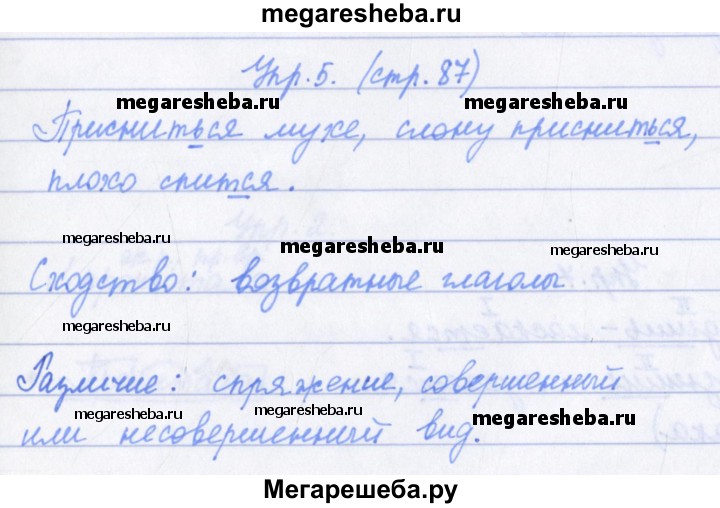 megaresheba.ru
Упр. 5. (стр. 87)
megaresheba.ru megaresheba.ru
Присниться мухе, слону присниться,
плохо спится.
megaresheba.ru megaresheba.ru megaresheba.ru
Сходство: возвратные глаголы
megaresheba.ru
Различие: спряжение, совершенный
megaresheba.ru megaresheba.ru megaresheba.ru
или несовершенный вид.
Мегарешеба.ру